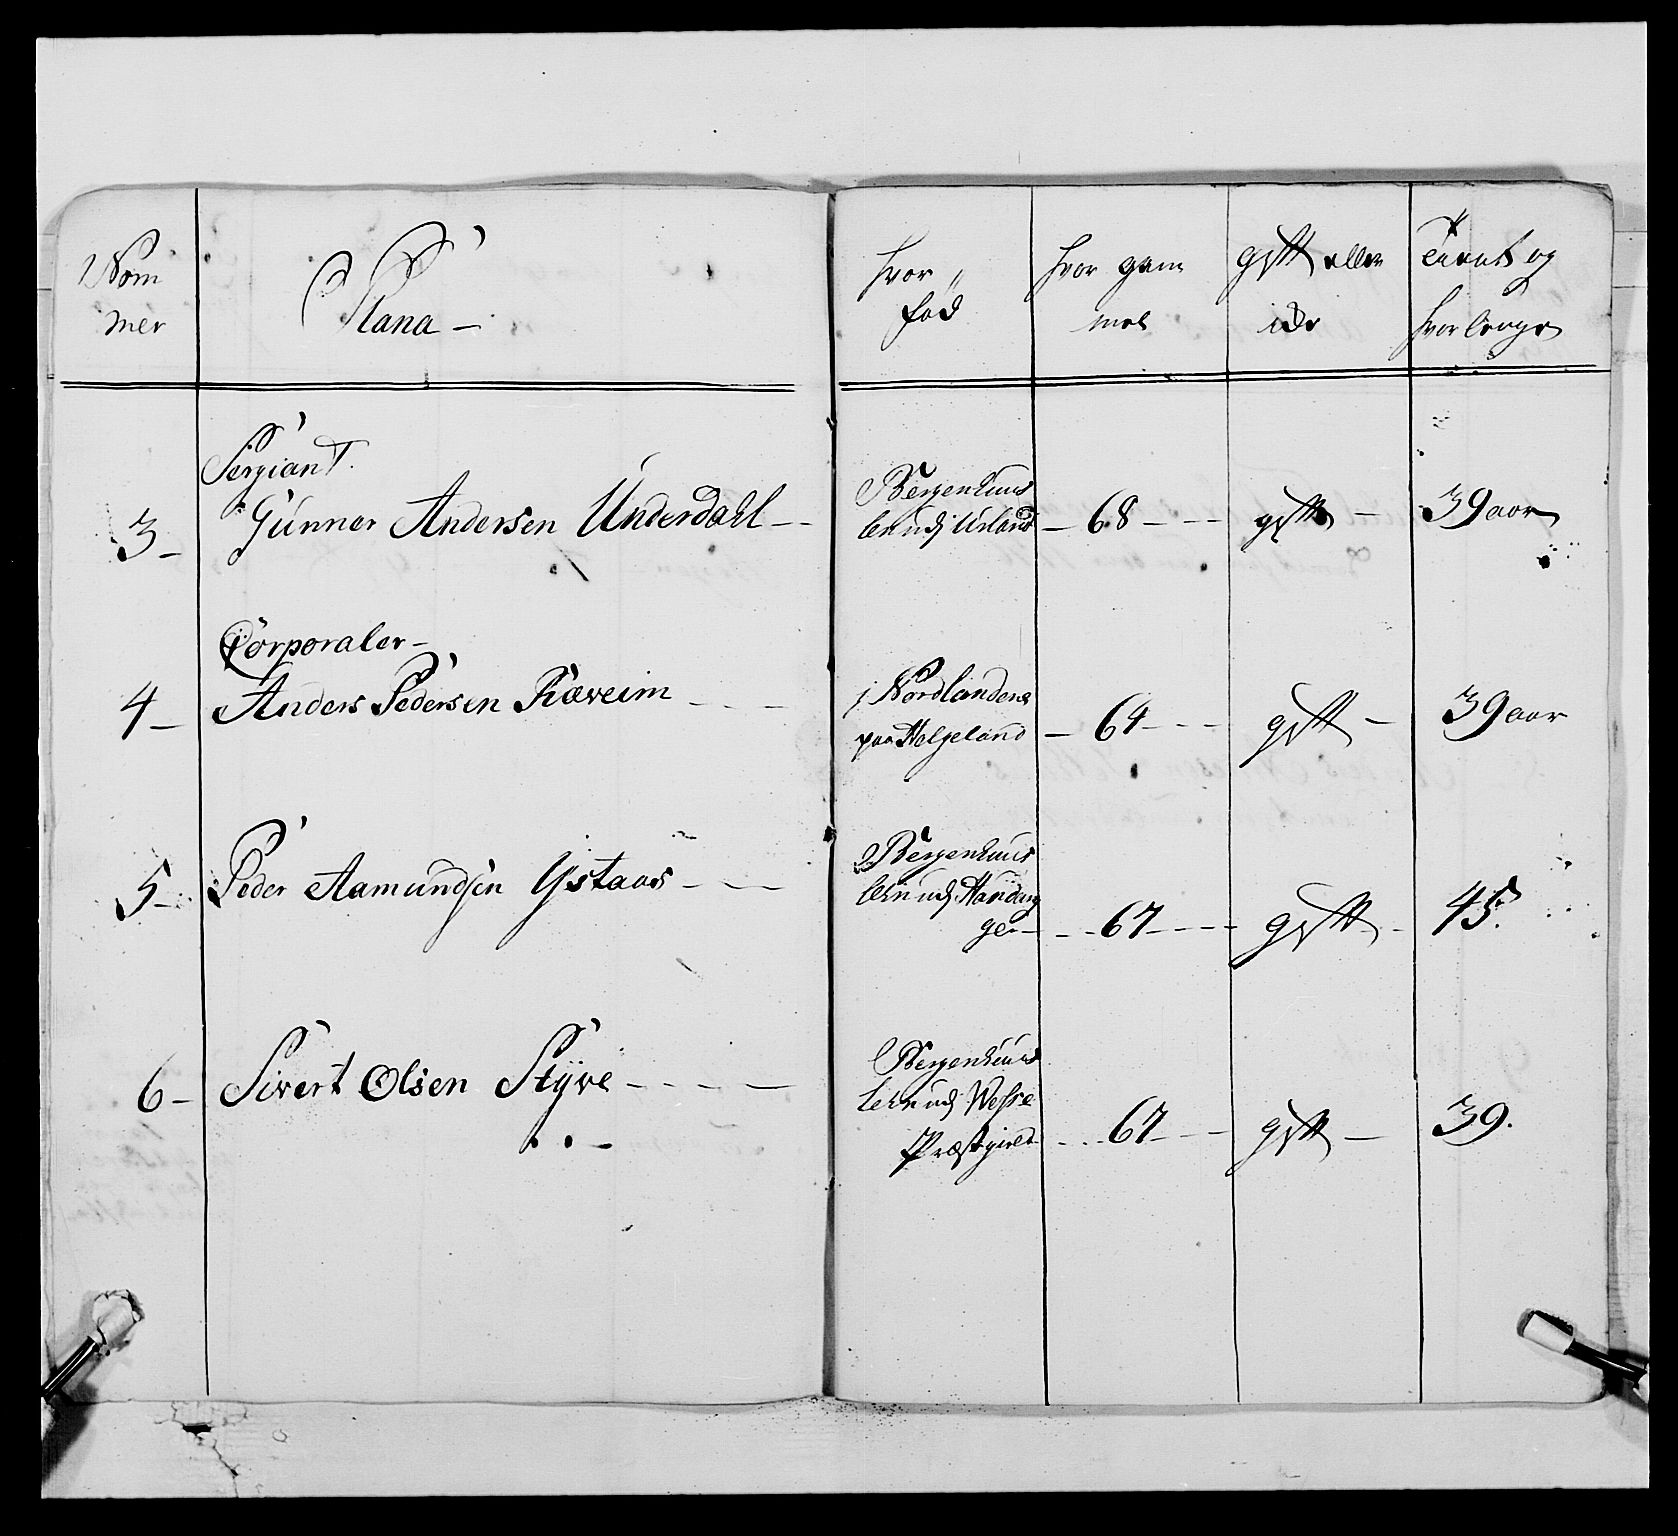 Nom
mer
Nana
hvor
fød
hvor gam
mel
gift eller
ide
Tient og
hvor lenge
Sergiant.
3 Gunner Andersen Underdahl
Bergenhuus
lehn udj Urland
68
gift
39 aar
Corporaler
4 Anders Pedersen Ræveim
j Nordlandene
paa Helgeland
64
gift
39 aar
5 Peder Aamundsen Ystaas
Bergenhuus
lehn udj Hardang
ger
67
gift
45.
6 Sivert Olsen Styve
Bergenhuus
lehn udj Wosse
Præstgield
67
gift
39.